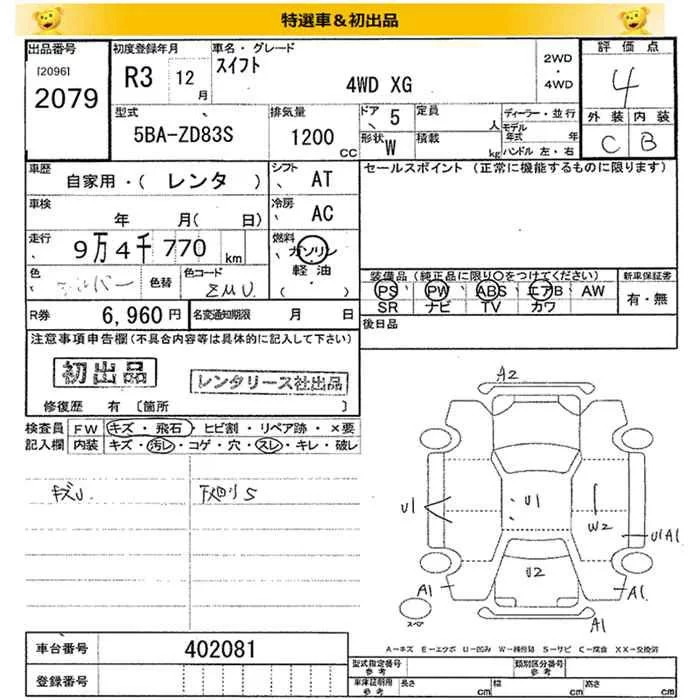 特選車＆初出品
出品番号
[2096]
2079
初度登録年月
R3 12月
車名・グレード
スイフト
4WD XG
2WD
・
4WD
評価点
4
外装 内装
C B
型式
5BA-ZD83S
排気量
1200 CC
ドア 5
定員 人
形状 W
積載 kg
ディーラー・並行
モデル年式 年
ハンドル 左・右
車歴
自家用・( レンタ )
シフト AT
セールスポイント (正常に機能するものに限ります)
車検
年 月( 日)
冷房 AC
走行
9万4千770 km
燃料
ガソリン
軽油
( )
色
シルバー
色替
色コード
ZMU
装備品 (純正品に限り○をつけてください)
PS PW ABS エアB AW
SR ナビ TV カワ
新車保証書
有・無
R券 6,960 円
名変通知期限 月 日
後日品
注意事項申告欄(不具合内容等は具体的に記入して下さい)
初出品
レンタリース社出品
修復歴 有 [箇所 ]
検査員記入欄
FW キズ・飛石・ヒビ割・リペア跡・×要
内装 キズ・汚レ・コゲ・穴・スレ・キレ・破レ
キズU
下廻りS
A2
U1
U1
W2
U1A1
U2
A1
A1
A1
スペア
A-キズ E-エクボ U-凹み W-補修跡 S-サビ C-腐食 XX-交換済
車台番号 402081
登録番号
型式指定番号 参考
類別区分番号 参考
車庫証明用 参考
長さ cm
幅 cm
高さ cm